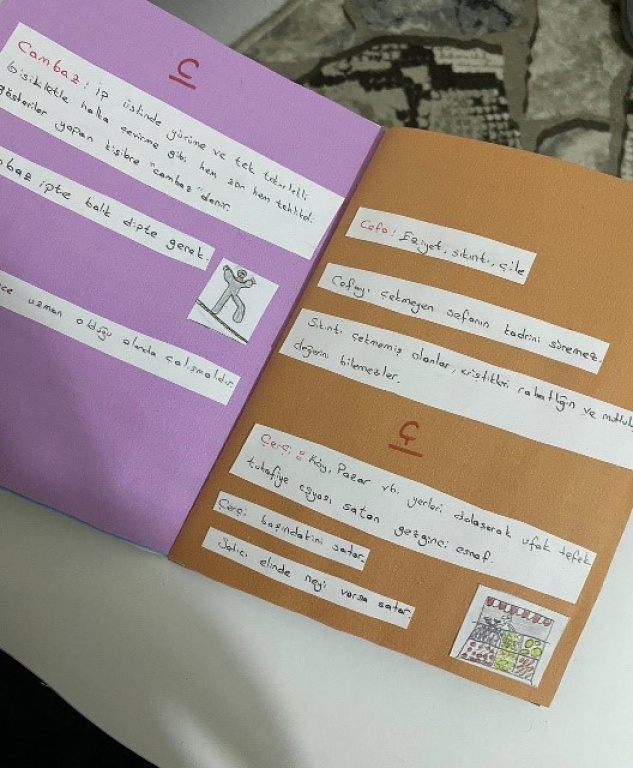 C
Cambaz: ip üstünde yürüme ve tek tekerlekli
bisikletle halka çevirme gibi hem zor hem tehlikeli
gösteriler yapan kişiye "cambaz" denir.
ipte balık dipte gerek.
uzman olduğu alanda çalışmalıdır.
Cefa: Eziyet, sıkıntı, çile
Cefayı çekmeyen sefanın kadrini süremez.
Sıkıntı çekmemiş olanlar, eristikleri rahatlığın ve
değerini bilemezler.
Ç
Çerçi: Köy, Pazar vb. yerleri dolaşarak ufak tefek
tuhafiye eşyası satan gezginci esnaf.
Çerçi başındakini satar.
Satıcı elinde neyi varsa satar.